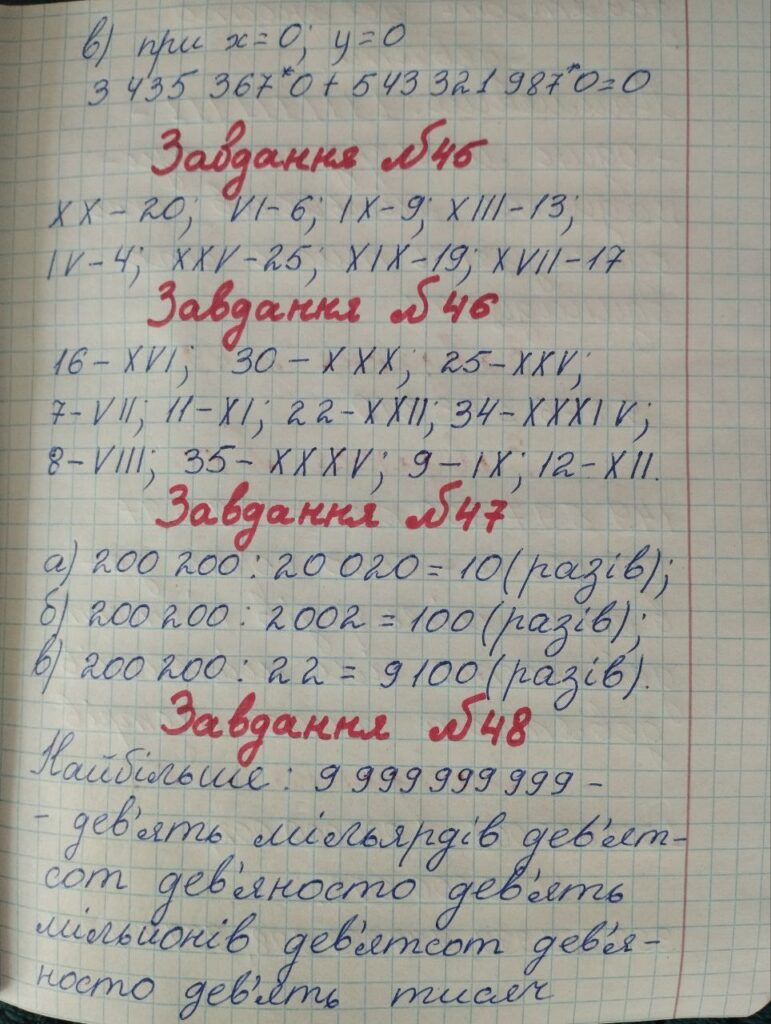 в) при x=0; y=0
3 435 367*0+543 321 987*0=0
Завдання №45
XX-20; VI-6; IX-9; XIII-13;
IV-4; XXV-25; XIX-19; XVII-17
Завдання №46
16-XVI; 30-XXX; 25-XXV;
7-VII; 11-XI; 22-XXII; 34-XXXIV;
8-VIII; 35-XXXV; 9-IX; 12-XII.
Завдання №47
а) 200 200:20 020=10(разів);
б) 200 200:2002=100(разів);
в) 200 200:22=9100(разів).
Завдання №48
Найбільше: 9 999 999 999-
- дев'ять мільярдів дев'ят-
сот дев'яносто дев'ять
мільйонів дев'ятсот дев'я-
носто дев'ять тисяч